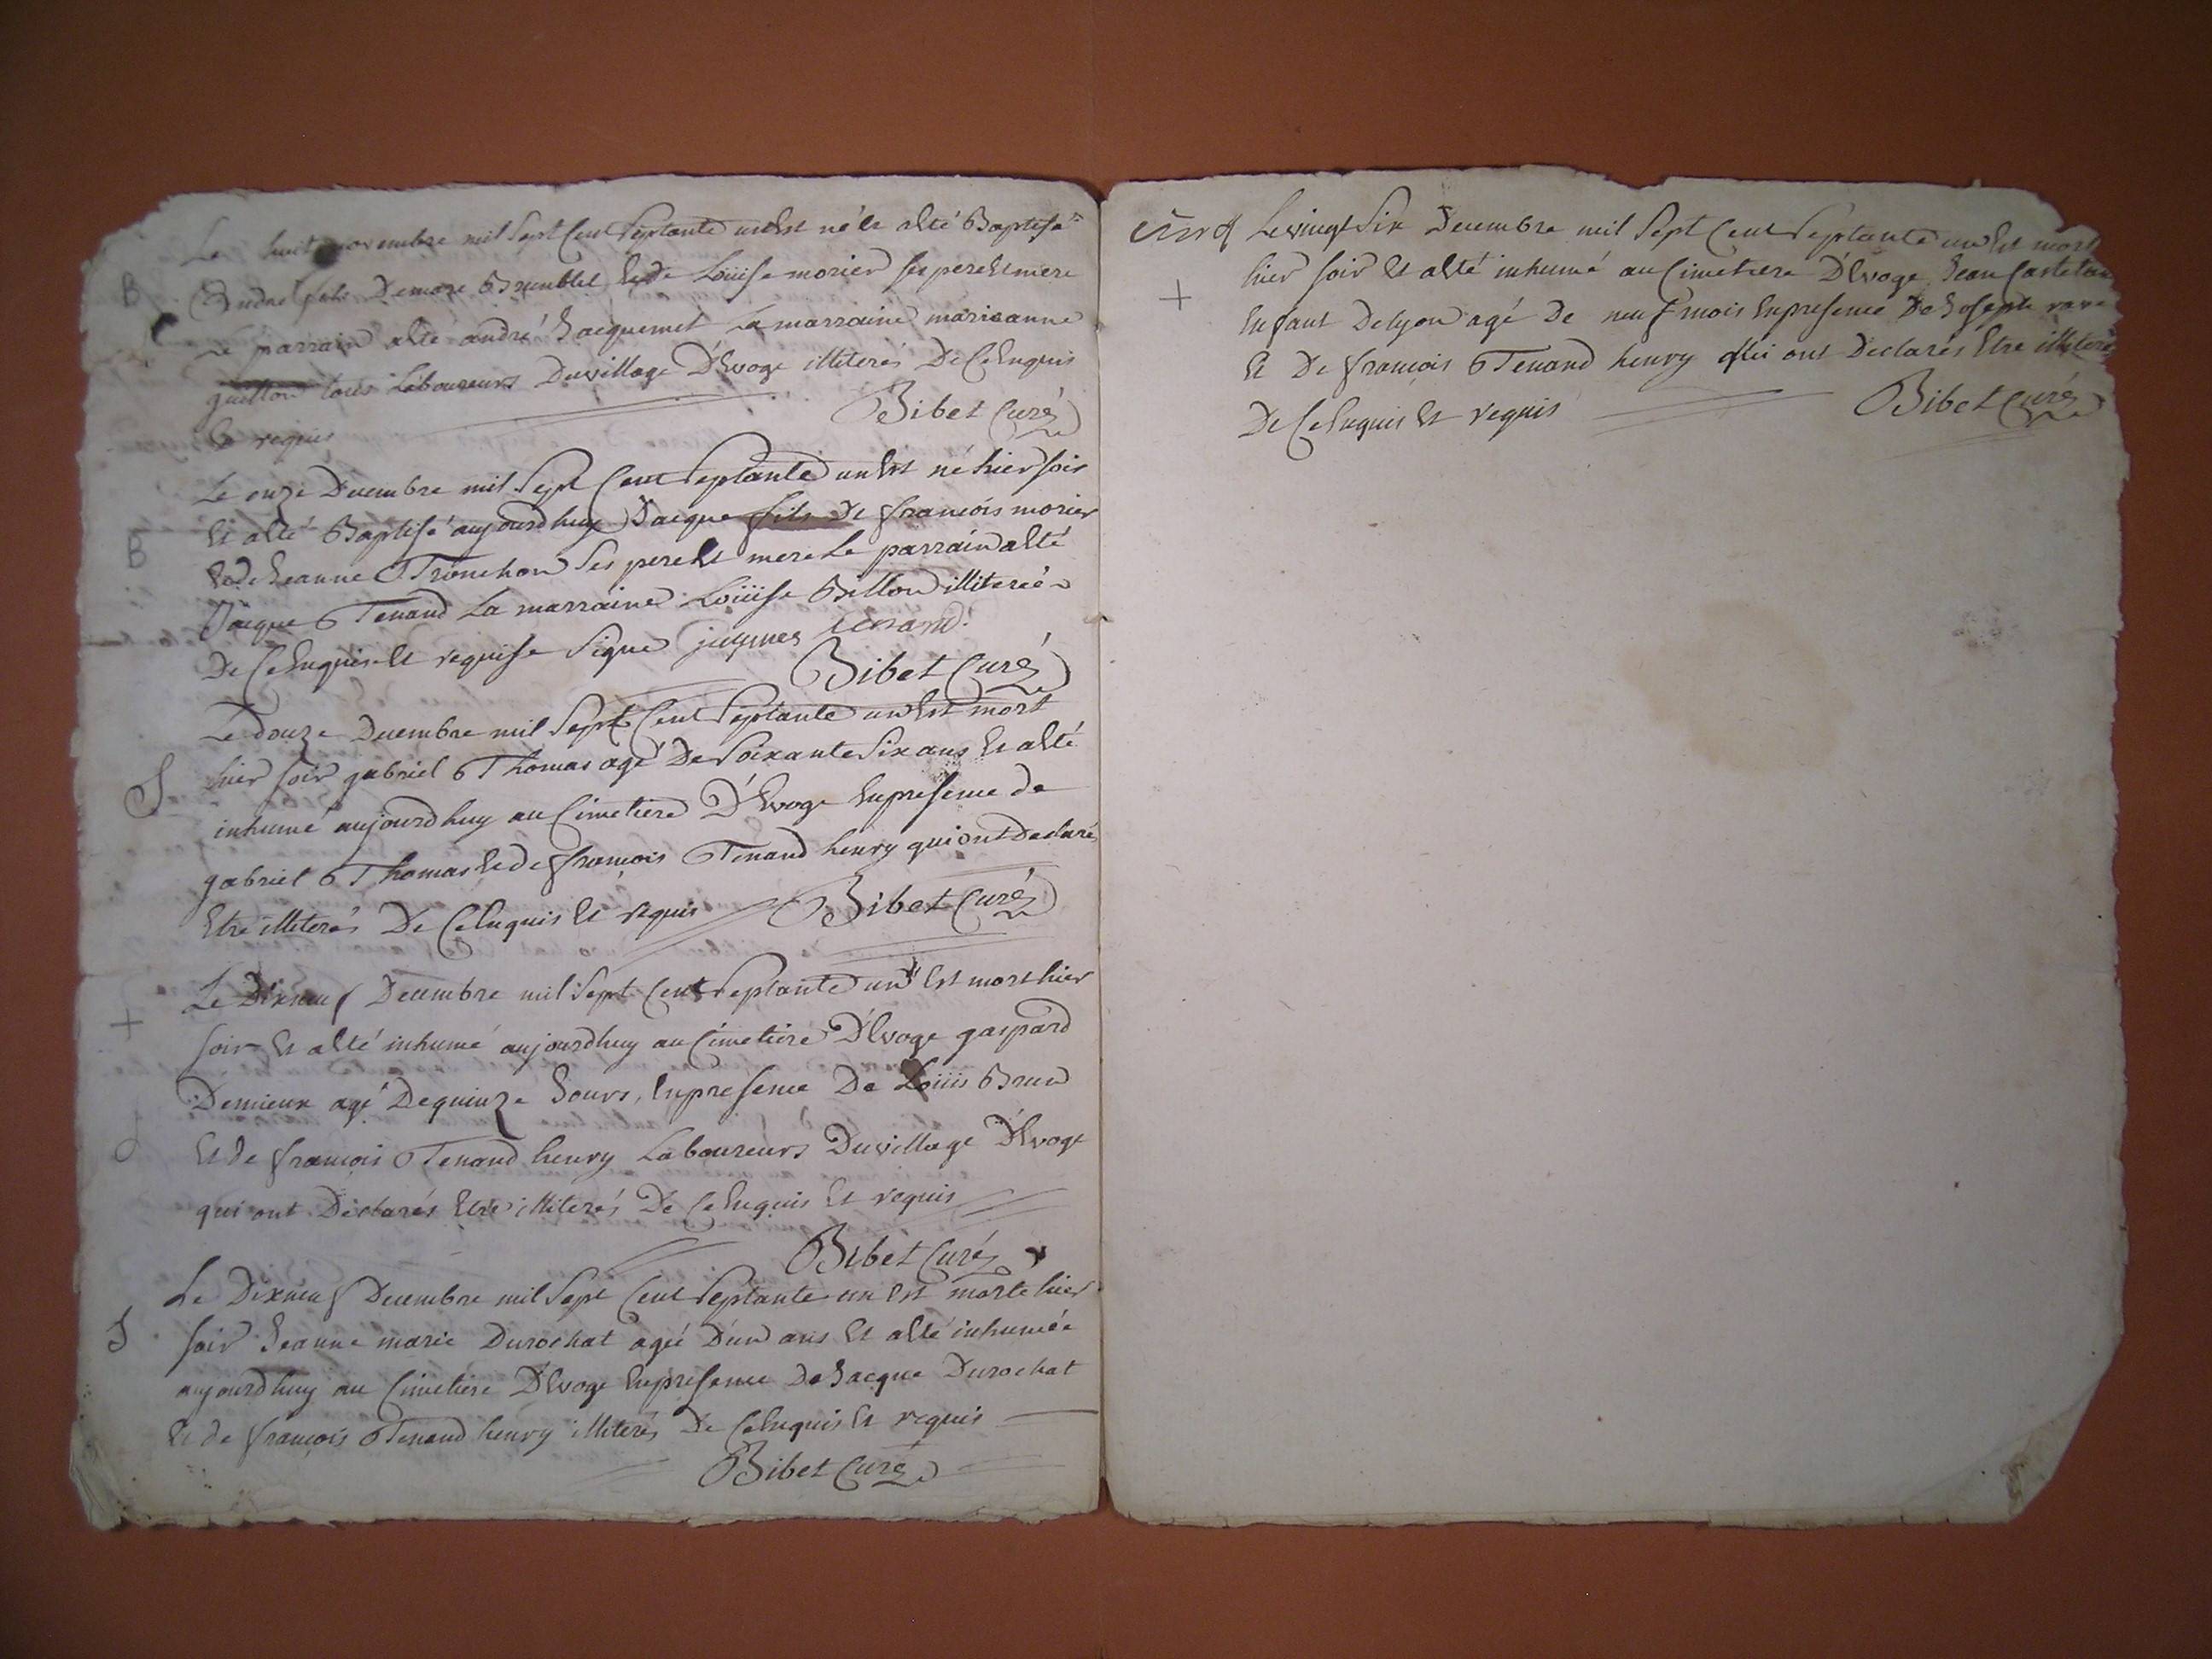 Le huit novembre mil Sept Cent Septante un Est né Et a Eté Baptisé
B André fils De more Brunblet Et de Loüise morier ses pere Et mere
Le parrain a Eté andré Jacquemet La marraine marieanne
guitton tous Laboureurs Du village D'Evoge illiterés De Ce Enquis
Et requis Bibet Curé
Le onze Decembre mil Sept Cent Septante un Est né hier soir
B Et a Eté Baptisé aujourdhuy Jacque fils De François morier
Et de Jeanne Tronchon Ses pere Et mere Le parrain a Eté
Jacque Tenand La marraine Loüise Billon illiterée
De Ce Enquise Et requise Signé jacques tenand
Bibet Curé
Le douze Decembre mil Sept Cent Septante un Est mort
S hier soir gabriel Thomas agé De Soixante Six ans Et a Eté
inhumé aujourdhuy au Cimetiere D'Evoge En presence de
gabriel Thomas Et de François Tenand henry qui ont Declarés
Etre illiterés De Ce Enquis Et requis Bibet Curé
+ Le Dixneuf Decembre mil Sept Cent Septante un Est mort hier
soir Et a Eté inhumé aujourdhuy au Cimetiere D'Evoge gaspard
Demieux agé De quinze Jours, En presence De Loüis Brun
Et de François Tenand henry Laboureurs Du village D'Evoge
qui ont Déclarés Etre illiterés De Ce Enquis Et requis
Bibet Curé
Le Dixneuf Decembre mil Sept Cent Septante un Est morte hier
S soir Jeanne marie Durochat agée D'un ans Et a Eté inhumée
aujourdhuy au Cimetiere D'Evoge En presence De Jacque Durochat
Et de François Tenand henry illiterés De Ce Enquis Et requis
Bibet Curé
Le vingt Six Decembre mil Sept Cent Septante un Est mort
+ hier soir Et a Eté inhumé au Cimetiere D'Evoge Jean
Enfant De lyon agé De neuf mois En presence De Joseph
Et De François Tenand henry qui ont Declarés Etre illiterés
De Ce Enquis Et requis Bibet Curé